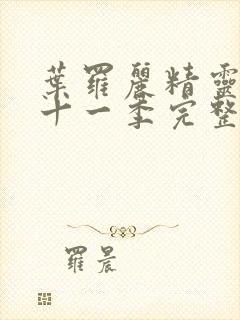 葉羅麗精靈
十一季完整
羅晨